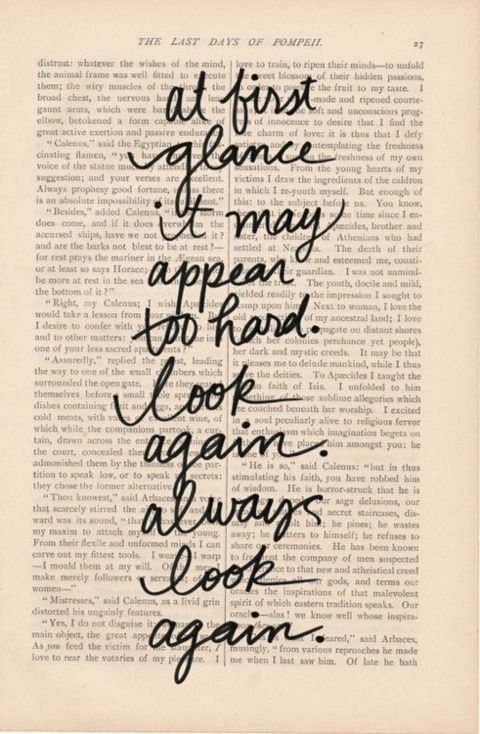 THE LAST DAYS OF POMPEII. 27
at first
glance
it may
appear
too hard.
look
again.
always
look
again.
distrust: whatever the wishes of the mind,
the animal frame was well fitted to execute
them; the wiry muscles of the
broad chest, the nervous
gaunt arms, which were
elbow, betokened a form
great active exertion and passive
"Calenus," said the Egyptian
cinating flamen,
voice of the statue
suggestion; and your verses are excellent.
Always prophesy good fortune,
is an absolute impossibility
"Besides," added Calenus, storm
does come, and if it does
accursed ships, have we not it?
and are the barks not blest to be at rest?—
for rest prays the mariner in the Ægean sea,
or at least so says Horace;
be more at rest in the sea
the bottom of it?"
"Right, my Calenus; I wish Apæcides
would take a lesson from
I desire to confer with
and to other matters:
one of your less sacred
"Assuredly," replied the priest, leading
the way to one of the small chambers which
surrounded the open gate.
themselves before small
dishes containing
cold meats, with wine, of
which while the companions
tain, drawn across the
the court, concealed
admonished them by the thinness of the par-
tition to speak low, or to speak secrets:
they chose the former alternative.
"Thou knowest," said Arbaces,
that scarcely stirred the
ward was its sound,
my maxim to attach young.
From their flexile and unformed
carve out my fittest tools. I warp
—I mould them at my will. Of
make merely followers servants;
women—"
"Mistresses," said Calenus, as a livid grin
distorted his ungainly features.
"Yes, I do not disguise it: the
main object, the great
As you feed the victim for the slaughter, I
love to rear the votaries of my pleasure. I
love to train, to ripen their minds—to unfold
sweet blossom of their hidden passions,
the fruit to my taste. I
made and ripened courte-
soft and unconscious prog-
of innocence to desire that I find the
charm of love: it is thus that I defy
contemplating the freshness
freshness of my own
sensations. From the young hearts of my
victims I draw the ingredients of the caldron
in which I re-youth myself. But enough of
this: to the subject before us. You know,
some time since I en-
Apæcides, brother and
children of Athenians who had
settled at The death of their
parents, and esteemed me, consti-
guardian. I was not unmind-
The youth, docile and mild,
yielded readily the impression I sought to
stamp upon Next to woman, I love the
old of my ancestral land; I love
propagate on distant shores
her colonies perchance yet people),
her dark and mystic creeds. It may be that
me to delude mankind, while I thus
the deities. To Apæcides I taught the
faith of Isis. I unfolded to him
those sublime allegories which
couched beneath her worship. I excited
soul peculiarly alive to religious fervor
enthusiasm which imagination begets on
place amongst you: he
"He is so," said Calenus: "but in thus
stimulating his faith, you have robbed him
of wisdom. He is horror-struck that he is
sage delusions, our
secret staircases, dis-
him; he pines; he wastes
away; he mutters to himself; he refuses to
share our ceremonies. He has been known
to frequent the company of men suspected
to that new and atheistical creed
gods, and terms our
oracles the inspirations of that malevolent
spirit of which eastern tradition speaks. Our
oracles—alas! we know well whose inspira-
feared," said Arbaces,
musingly, "from various reproaches he made
me when I last saw him. Of late he hath